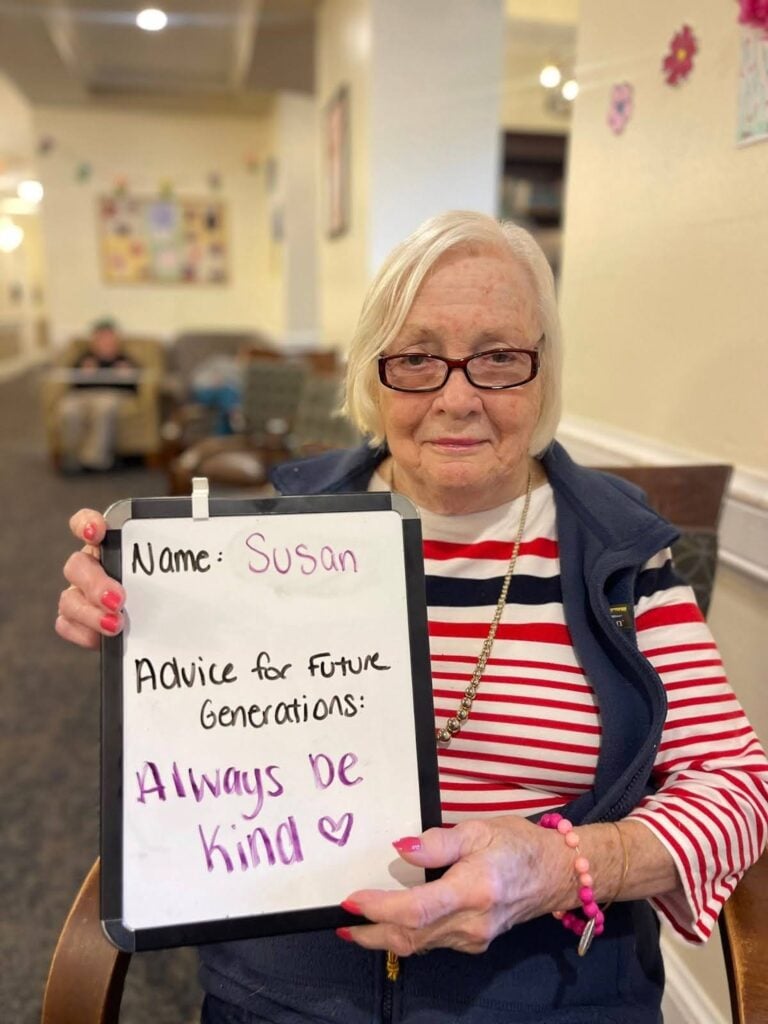 Name: Susan
Advice for Future
Generations:
Always be
kind ♡